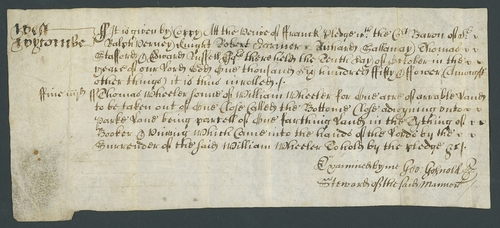 West
Wycombe
It is given by Coppy Att the veiwe of ffranck Pledge wth the Cort Baron of Sr
Ralph Verney knight Robert Dormer Richard Gallaway Thomas
Stafford & Edward Russell Esqrs there held the Tenth day of October in the
yeare of our Lord God one thousand six hundred fiffty & ffower (Amongst
other things) it is thus inrolled
ffine Thomas Wheeler sonne of William Wheeler for one acre of arrable land
to be taken out of one Close called the Bottome Close adioyning unto
Parke lane being parcell of one farthing land in the Tything of
Booker & Wicomb Which Came into the hands of the Lords by the
Surrender of the said William Wheeler To hold by the pledge &c
Examined by me Geo Gosnold
Steward of the said Mannor